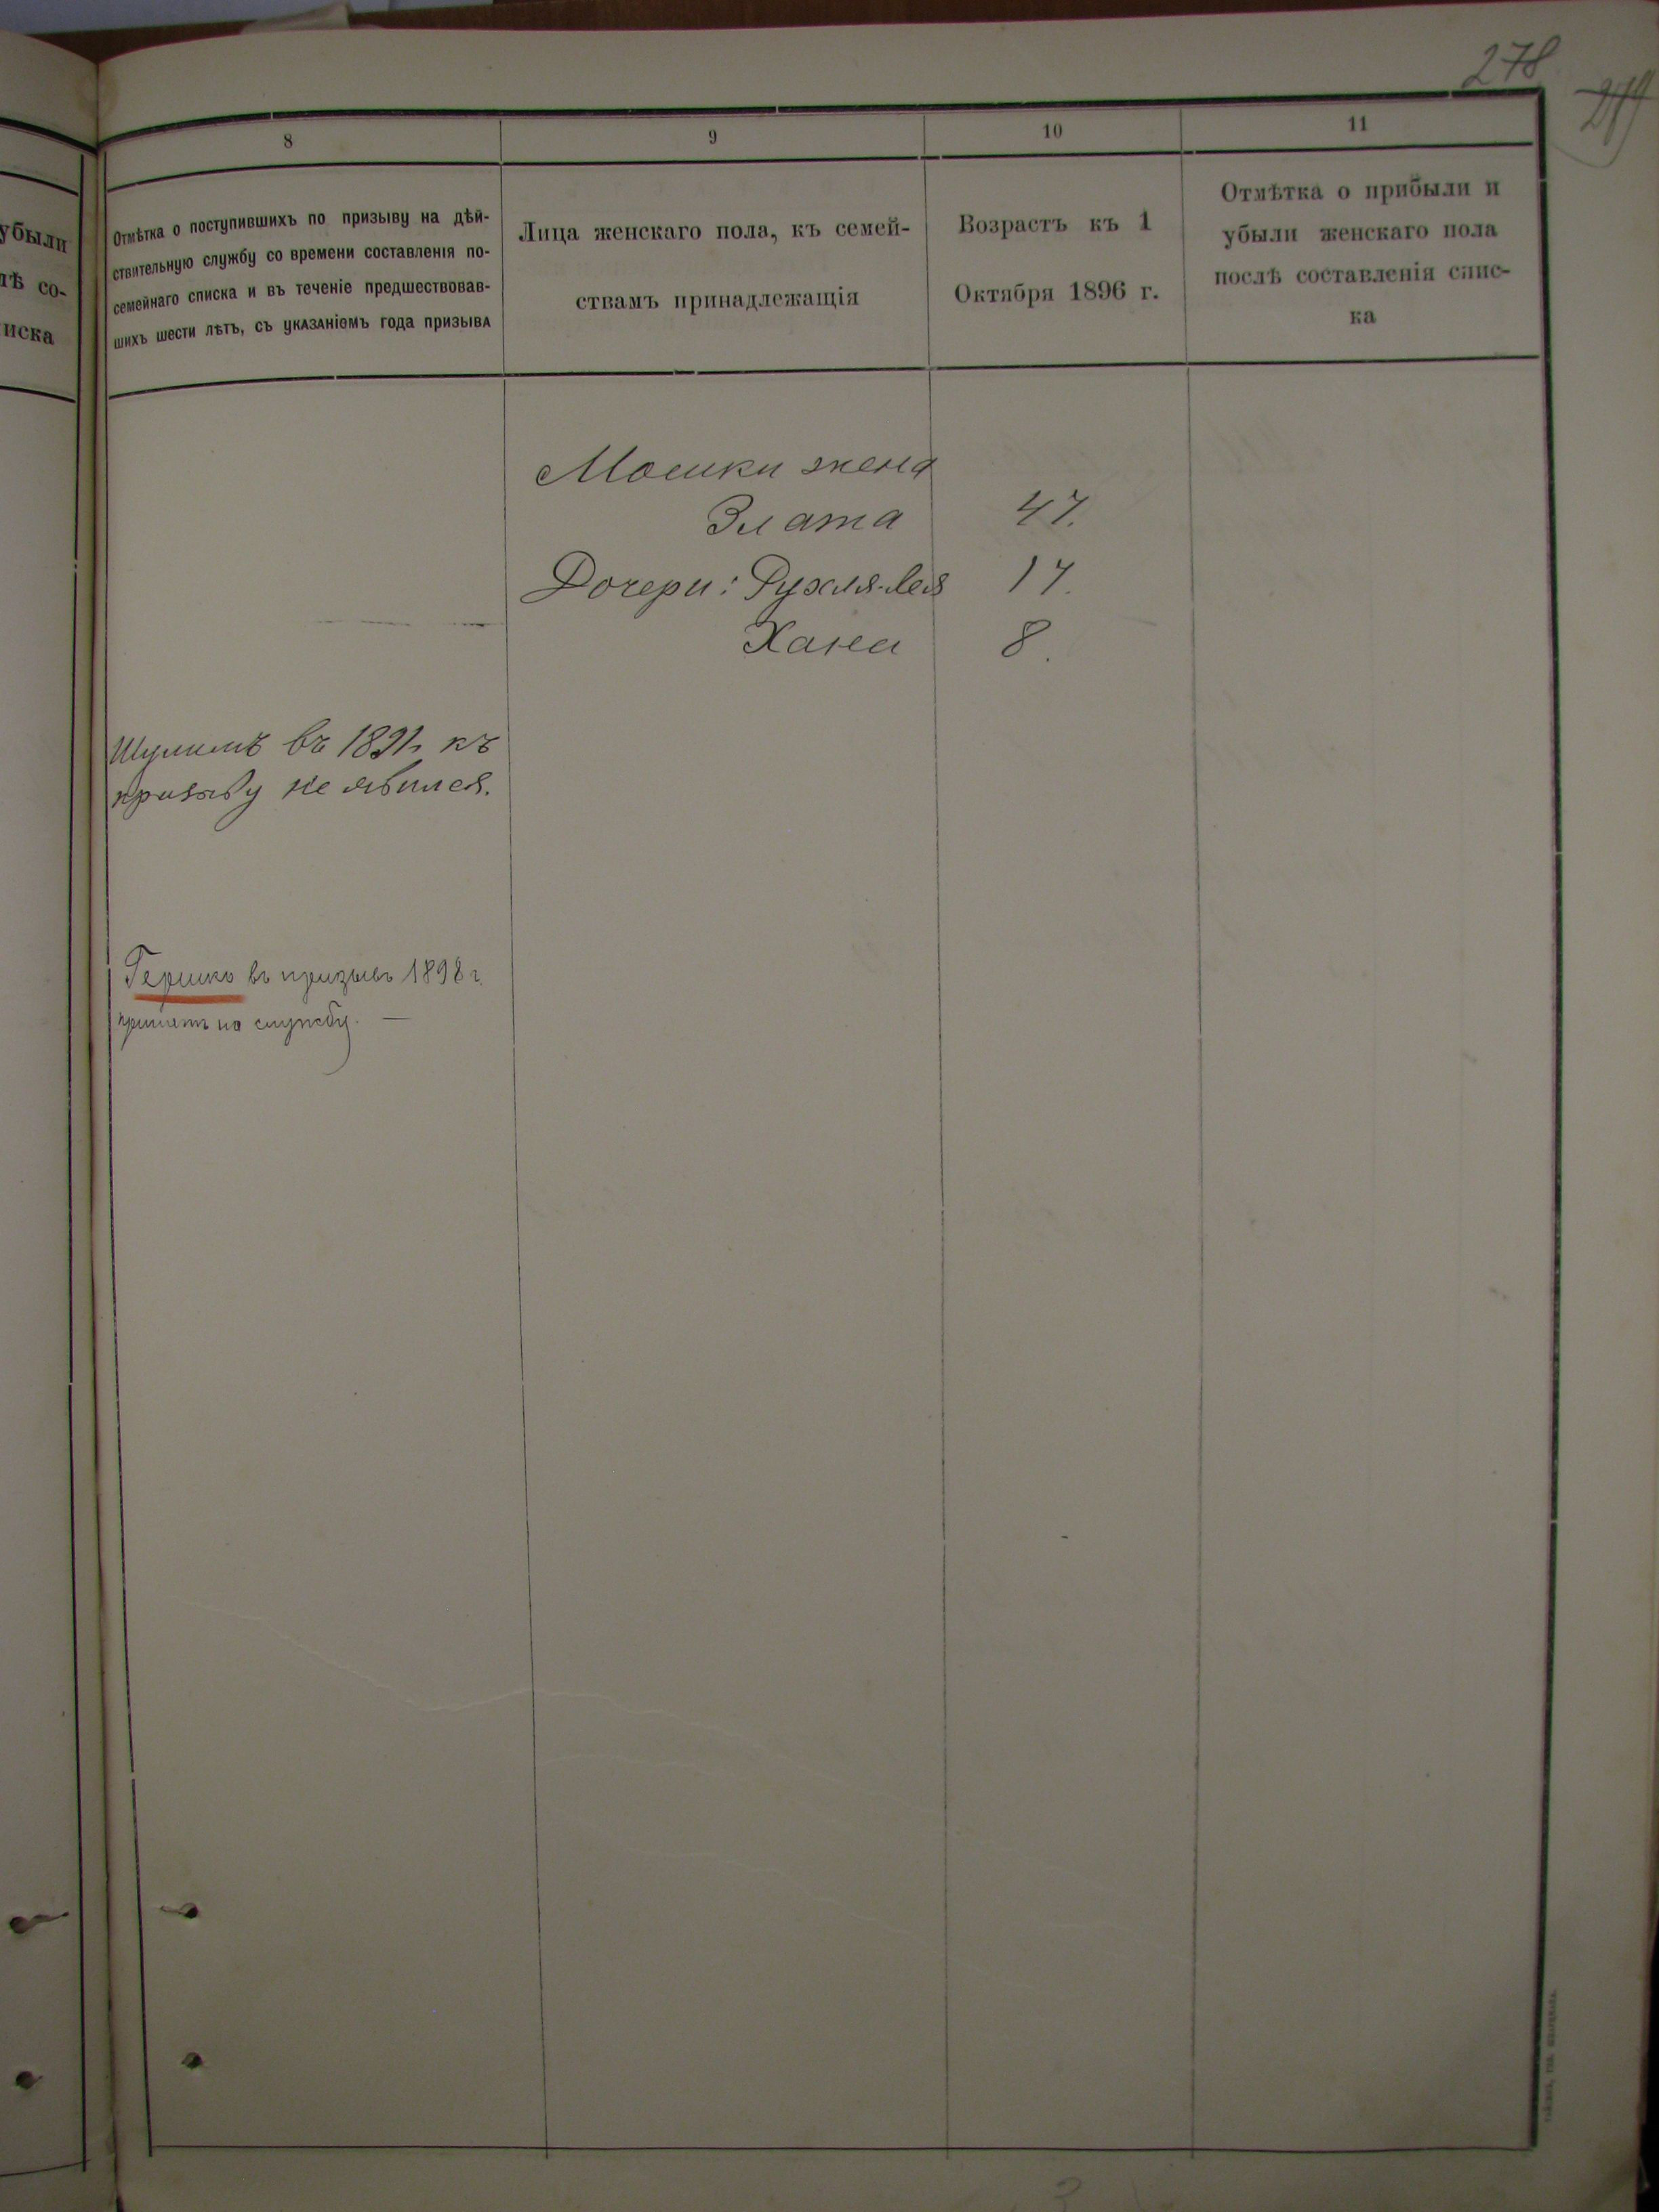 278
279
8
9
10
11
убыли
лѣ со-
иска
Отмѣтка о поступившихъ по призыву на дѣй-
ствительную службу со времени составленія по-
семейнаго списка и въ теченіе предшествовав-
шихъ шести лѣтъ, съ указаніемъ года призыва
Лица женскаго пола, къ семей-
ствамъ принадлежащія
Возрастъ къ 1
Октября 1896 г.
Отмѣтка о прибыли и
убыли женскаго пола
послѣ составленія спис-
ка
Мошки жена
Злата 47.
Дочери: Рухля-Лея 17.
Хана 8.
Шулимъ въ 1891 г. къ
призыву не явился.
Гершко въ призывъ 1898 г.
принятъ на службу. —